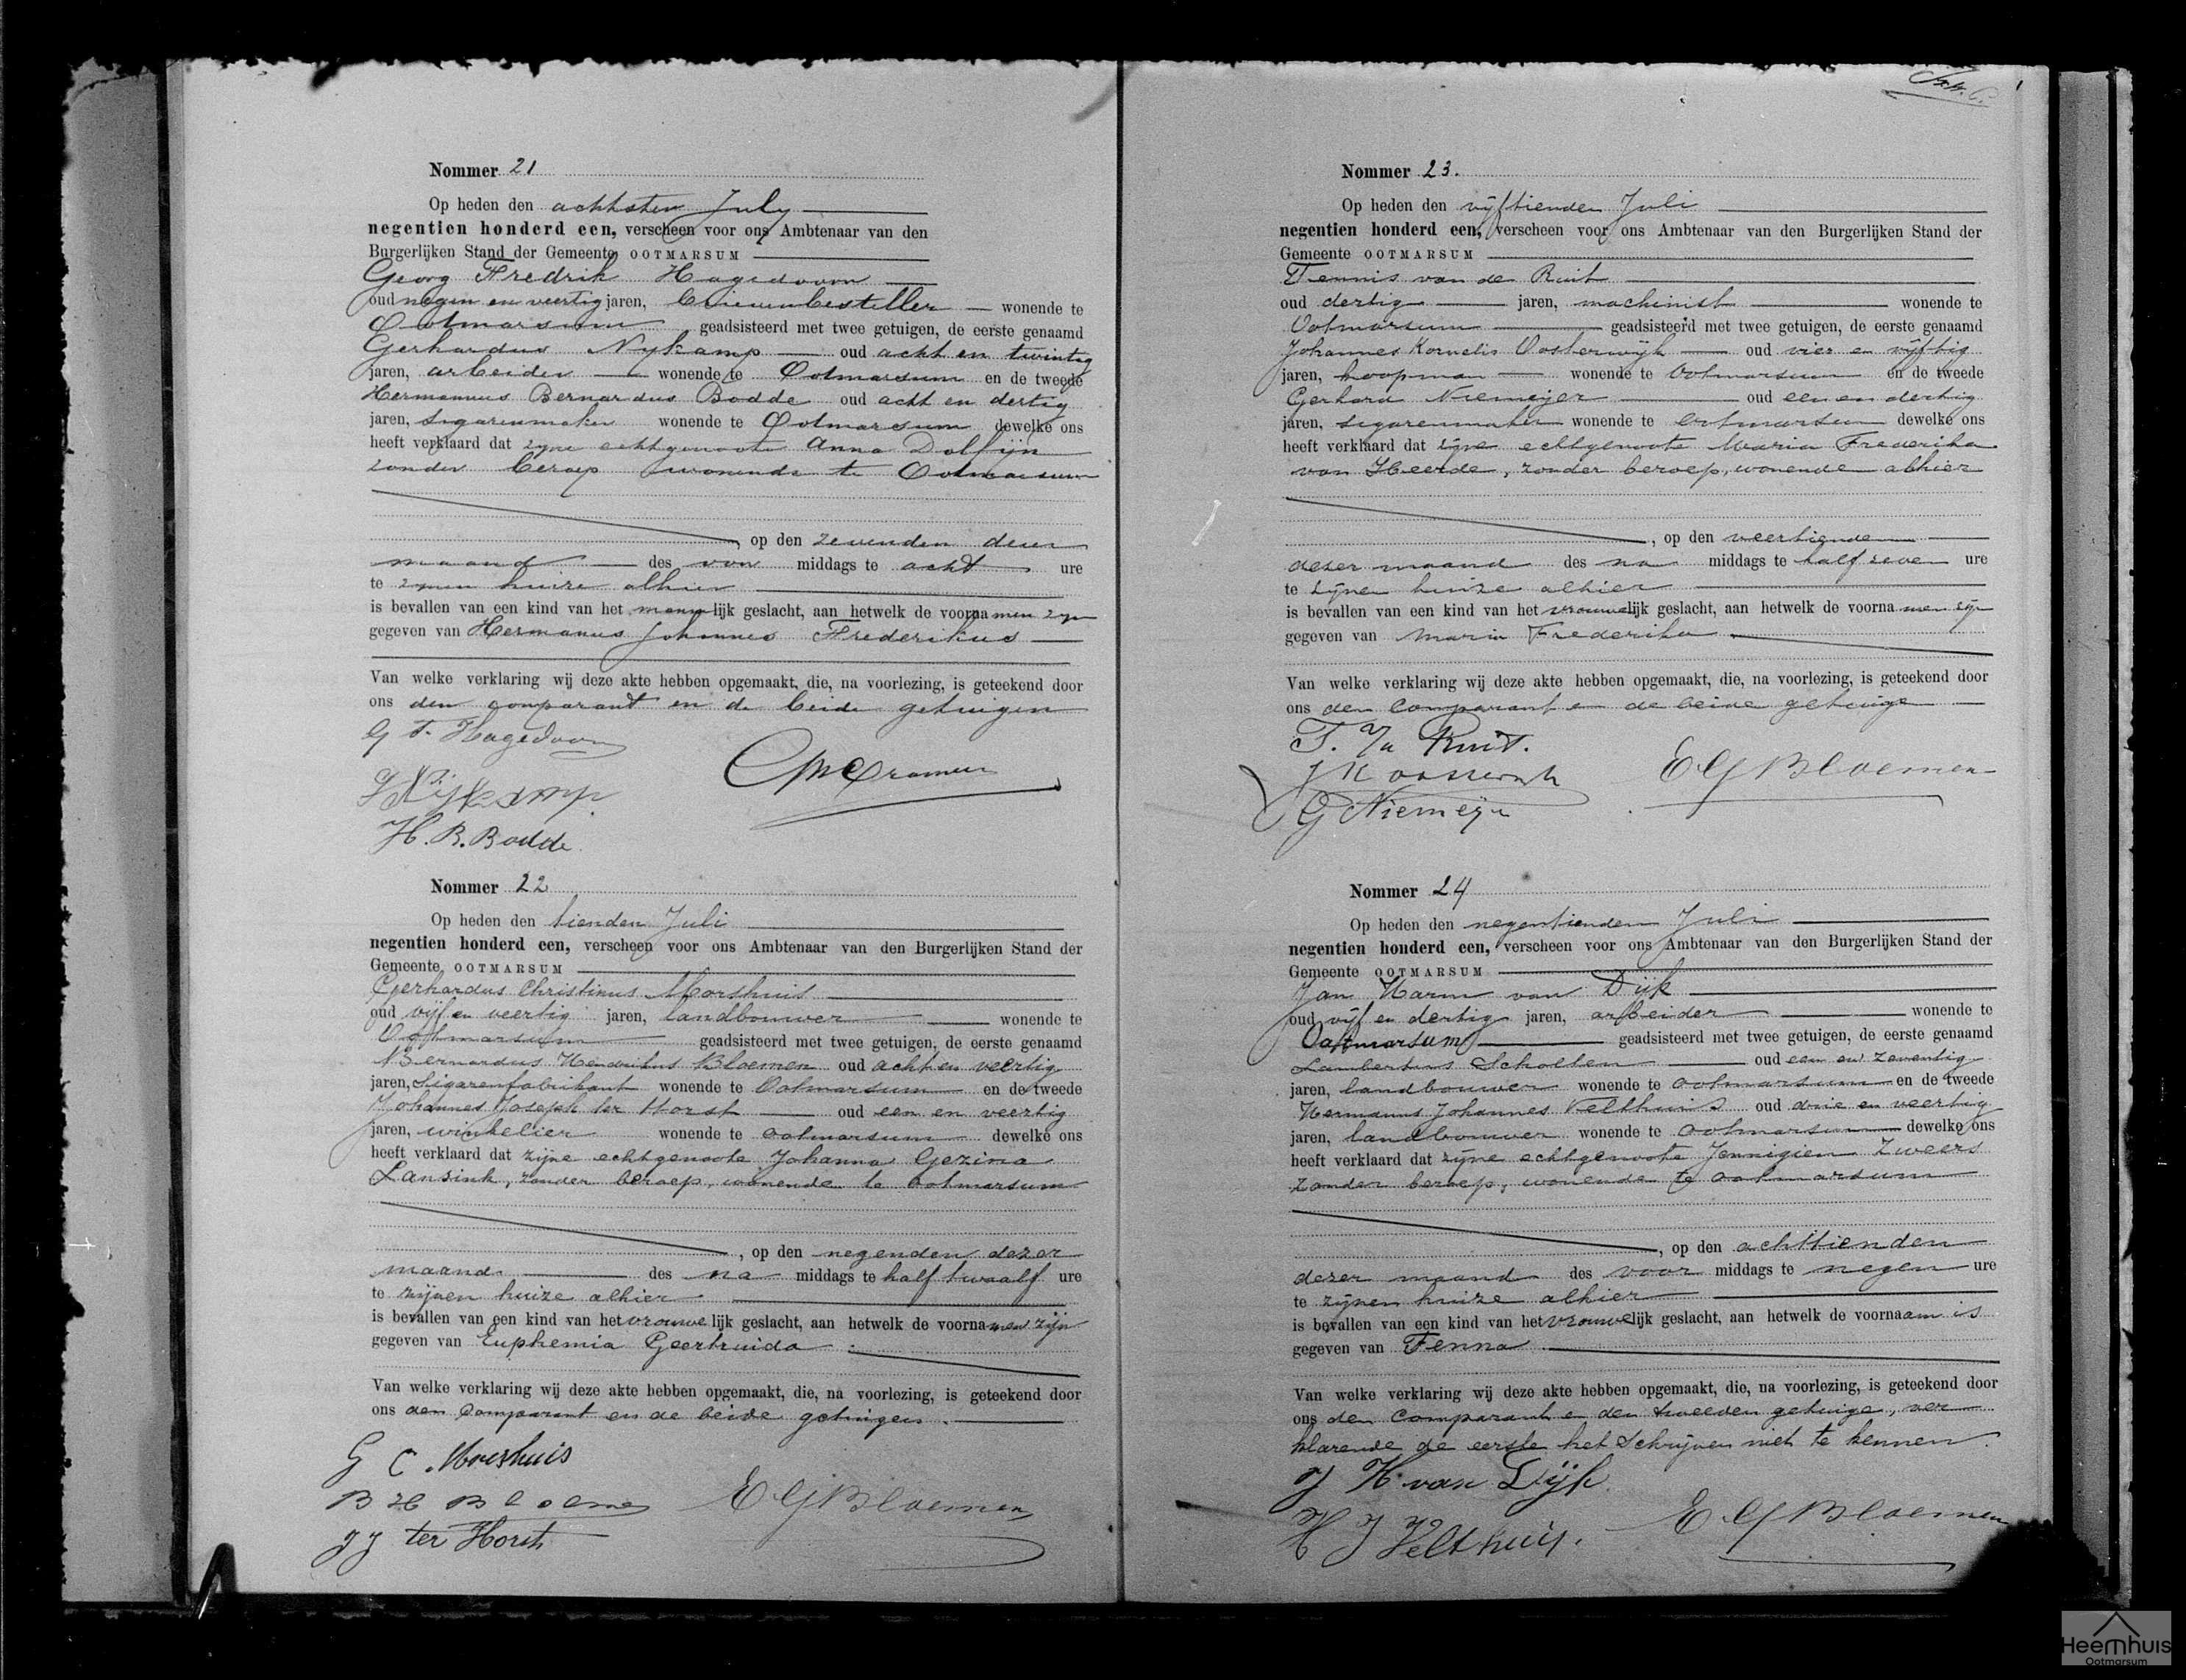 Nommer 21
Op heden den achtsten July
negentien honderd een, verscheen voor ons Ambtenaar van den
Burgerlijken Stand der Gemeente OOTMARSUM
Georg Fredrik Hagedoorn
oud negen en veertig jaren, brievenbesteller wonende te
Ootmarsum geadsisteerd met twee getuigen, de eerste genaamd
Gerhardus Nykamp oud acht en twintig
jaren, arbeider wonende te Ootmarsum en de tweede
Hermannus Bernardus Bodde oud acht en dertig
jaren, sigarenmaker wonende te Ootmarsum dewelke ons
heeft verklaard dat zyne echtgenoote Anna Dolfijn
zonder beroep wonende te Ootmarsum
, op den zevenden dezer
maand des voor middags te acht ure
te zynen huize alhier
is bevallen van een kind van het mannelijk geslacht, aan hetwelk de voornamen zyn
gegeven van Hermanus Johannes Frederikus
Van welke verklaring wij deze akte hebben opgemaakt, die, na voorlezing, is geteekend door
ons den comparant en de beide getuigen
G F Hagedoorn
Cramer
Nijkamp
H. B. Bodde
Nommer 22
Op heden den tienden Juli
negentien honderd een, verscheen voor ons Ambtenaar van den Burgerlijken Stand der
Gemeente OOTMARSUM
Gerhardus Christinus Morshuis
oud vijf en veertig jaren, landbouwer wonende te
Ootmarsum geadsisteerd met twee getuigen, de eerste genaamd
Bernardus Hendrikus Bloemen oud acht en veertig
jaren, Sigarenfabrikant wonende te Ootmarsum en de tweede
Johannes Joseph ter Horst oud een en veertig
jaren, winkelier wonende te Ootmarsum dewelke ons
heeft verklaard dat zijne echtgenoote Johanna Gezina
Lansink, zonder beroep, wonende te Ootmarsum
, op den negenden dezer
maand des na middags te half twaalf ure
te zijnen huize alhier
is bevallen van een kind van het vrouwelijk geslacht, aan hetwelk de voornamen zijn
gegeven van Euphemia Geertruida
Van welke verklaring wij deze akte hebben opgemaakt, die, na voorlezing, is geteekend door
ons den Comparant en de beide getuigen.
G C Morshuis
B H Bloemen E G Bloemen
J J ter Horst
Nommer 23.
Op heden den vijftienden Juli
negentien honderd een, verscheen voor ons Ambtenaar van den Burgerlijken Stand der
Gemeente OOTMARSUM
Teunis van de Ruit
oud dertig jaren, machinist wonende te
Ootmarsum geadsisteerd met twee getuigen, de eerste genaamd
Johannes Kornelis Oosterwijk oud vier en vijftig
jaren, koopman wonende te Ootmarsum en de tweede
Gerhard Niemeijer oud een en dertig
jaren, sigarenmaker wonende te Ootmarsum dewelke ons
heeft verklaard dat zijne echtgenoote Maria Frederika
van Heerde, zonder beroep, wonende alhier
, op den veertienden
dezer maand des na middags te half zeven ure
te zijnen huize alhier
is bevallen van een kind van het vrouwelijk geslacht, aan hetwelk de voornamen zijn
gegeven van Maria Frederika
Van welke verklaring wij deze akte hebben opgemaakt, die, na voorlezing, is geteekend door
ons den Comparant en de beide getuigen
T. Vd Ruit.
J K Oosterwijk E G Bloemen
G Niemeijer
Nommer 24
Op heden den negentienden Juli
negentien honderd een, verscheen voor ons Ambtenaar van den Burgerlijken Stand der
Gemeente OOTMARSUM
Jan Harm van Dijk
oud vijf en dertig jaren, arbeider wonende te
Ootmarsum geadsisteerd met twee getuigen, de eerste genaamd
Lambertus Scholten oud een en zeventig
jaren, landbouwer wonende te Ootmarsum en de tweede
Hermannus Johannes Velthuis oud drie en veertig
jaren, landbouwer wonende te Ootmarsum dewelke ons
heeft verklaard dat zijne echtgenoote Jennigien Zweers
zonder beroep, wonende te Ootmarsum
, op den achttienden
dezer maand des voor middags te negen ure
te zijnen huize alhier
is bevallen van een kind van het vrouwelijk geslacht, aan hetwelk de voornaam is
gegeven van Fenna
Van welke verklaring wij deze akte hebben opgemaakt, die, na voorlezing, is geteekend door
ons den Comparant en den tweeden getuige, ver
klarende de eerste het Schrijven niet te kennen.
J H van Dijk
H J Velthuis. E G Bloemen
Heemhuis
Ootmarsum